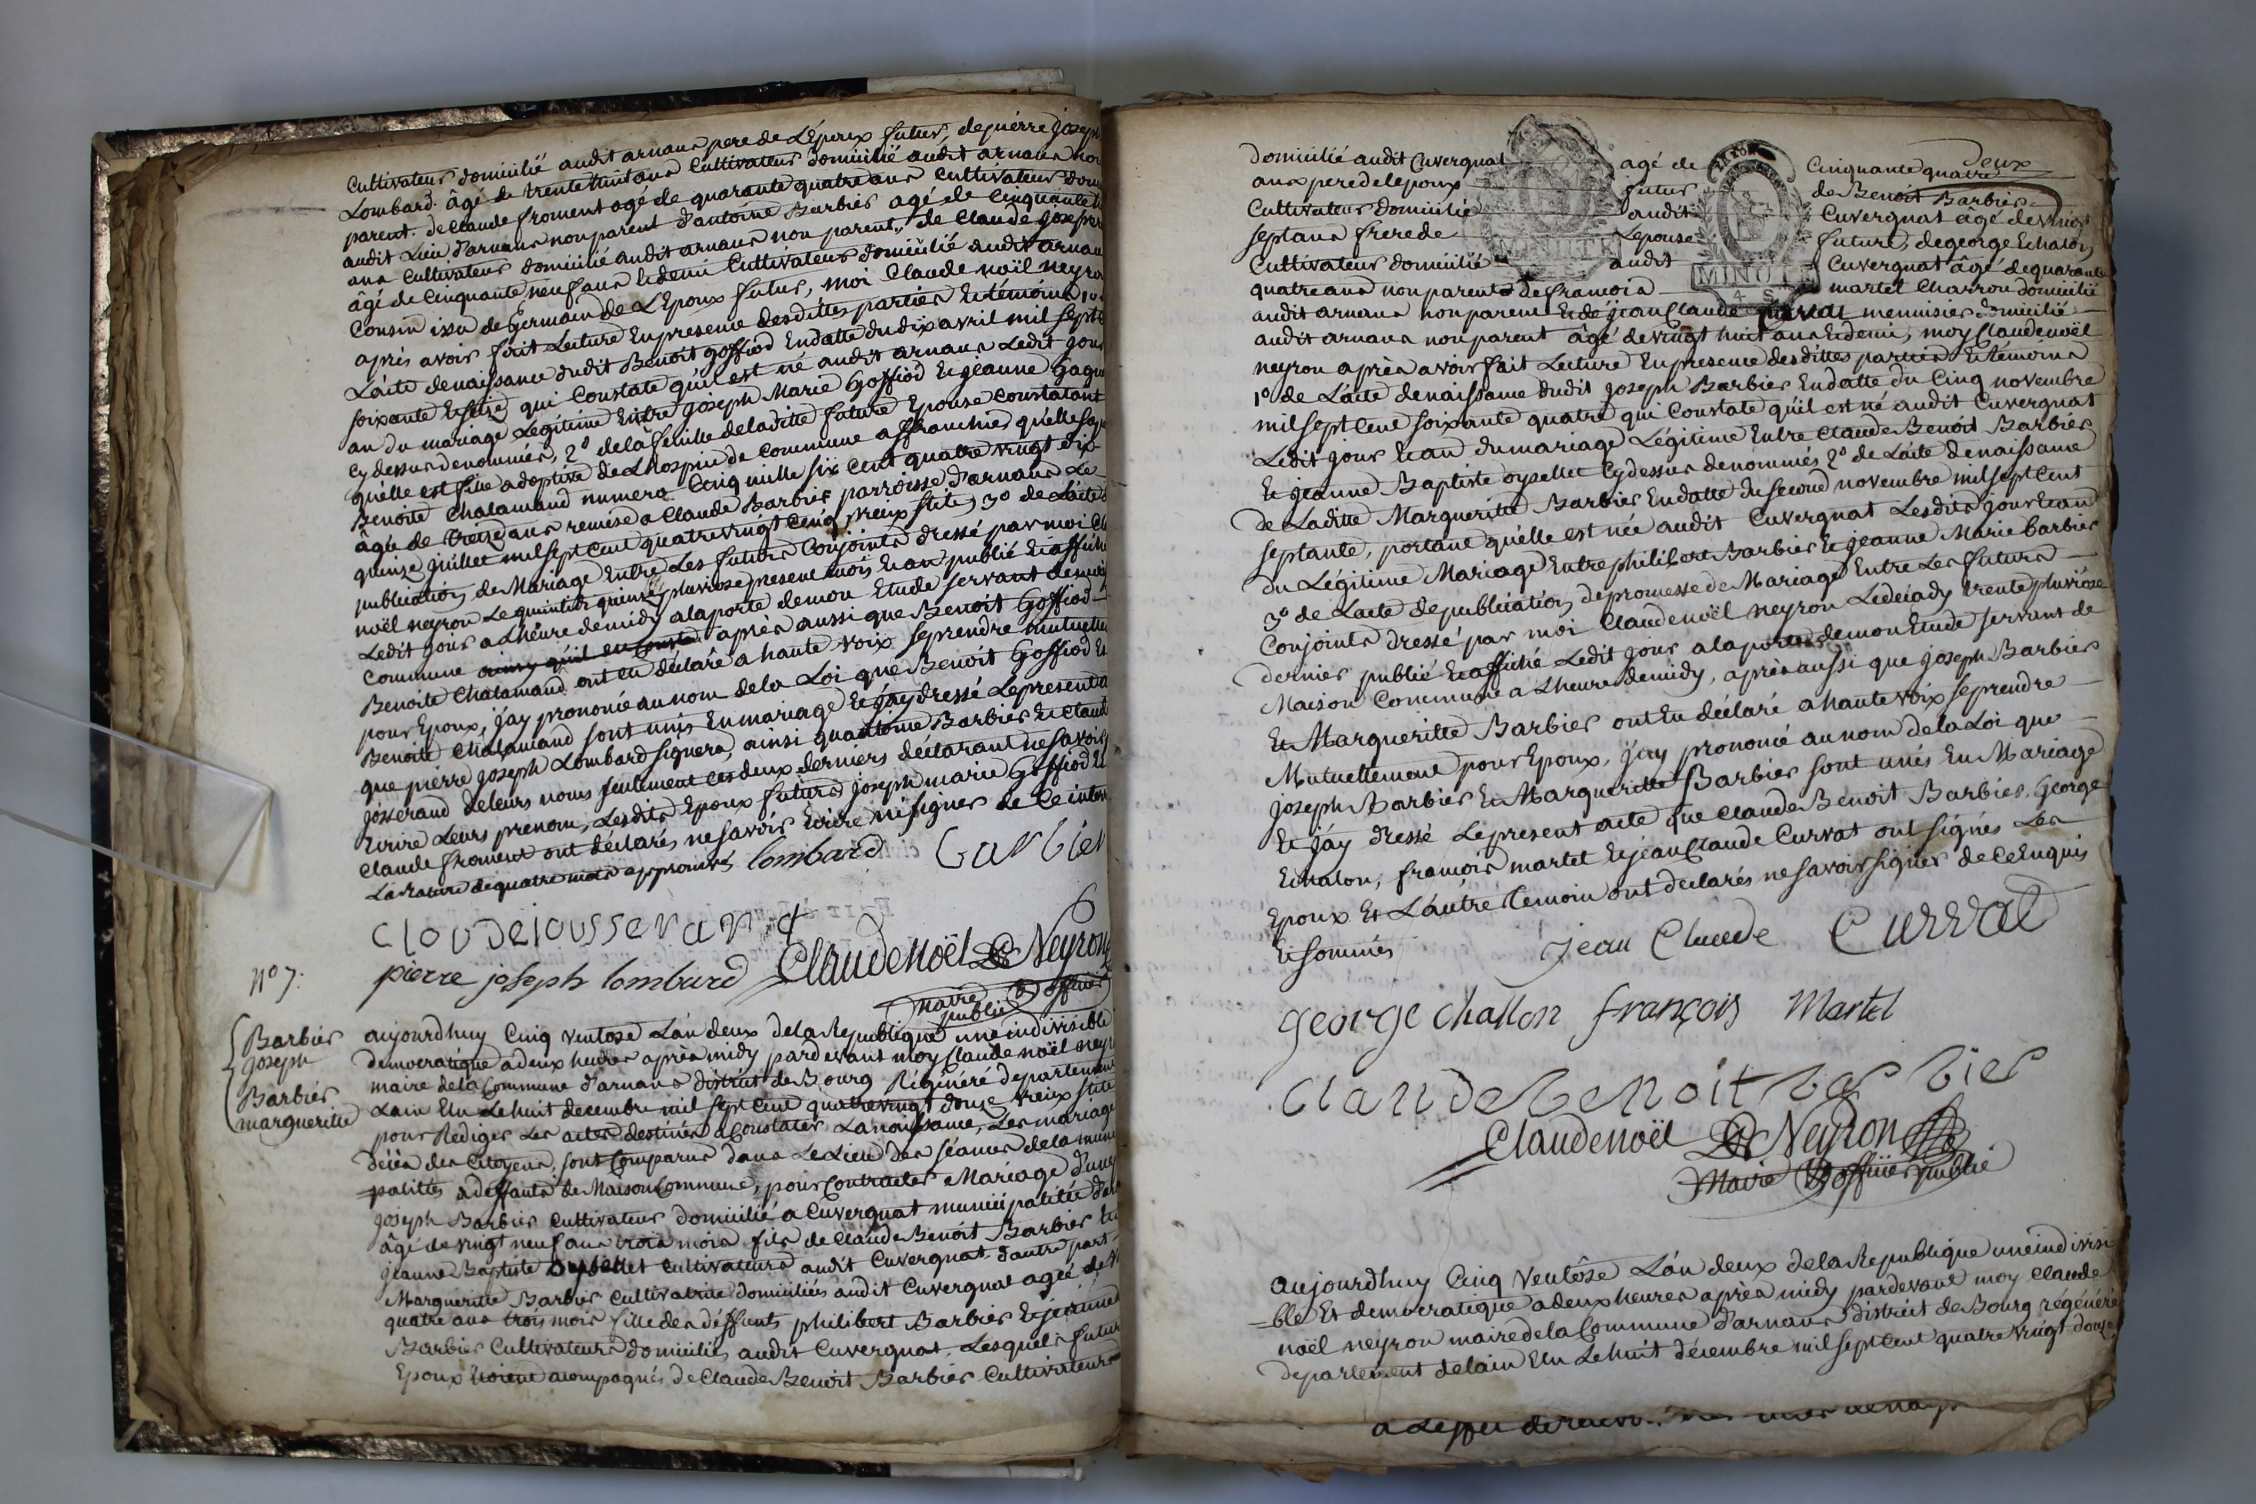 Cultivateur domicilié audit arnans pere de L'Epoux futur, de pierre joseph
Lombard âgé de trente huit ans Cultivateur domicilié audit arnans non
parent. de Claude froment agé de quarante quatre ans Cultivateur dom
audit Lieu d'arnans non parent d'antoine Barbier agé de Cinquante
ans Cultivateur domicilié audit arnans non parent, de Claude joseph
âgé de Cinquante neuf ans Et demi Cultivateur domicilié audit arnan
Cousin issu de Germain de L'Epoux futur, moi Claude noël neyron
après avoir fait Lecture En presence desdittes parties Et témoins 1º
L'acte de naissance dudit Benoit goffiod En datte du dix avril mil sept
soixante Et seize qui Constate qu'il est né audit arnans Ledit jour
an du mariage Légitime Entre joseph Marie Goffiod Et jeanne Gagn
Cy dessus denommés, 2º de la feuille de laditte future Epouse Constatant
qu'elle est fille adoptive de L'hospice de Commune affranchie, qu'elle s'ap
Benoite Chalamand numero Cinq mille six Cent quatre vingt dix
âgée de treize ans remise a Claude Barbier parroisse d'arnans Le
quinze juillet mil sept Cent quatre vingt Cinq, vieux stile, 3º de L'acte d
publication de Mariage Entre Les futurs Conjoints dressé par moi Cl
noël neyron Le quintidi quinze pluviose present mois Et an publié Et affiché
Ledit jour a L'heure de midy a la porte de mon Etude servant de mais
Commune ainsy qu'il en Conste après aussi que Benoit Goffiod
Benoite Chalamand ont Eu déclaré a haute voix se prendre mutuelle
pour Epoux, j'ay prononcé au nom de la Loi que Benoit Goffiod Et
Benoite Chalamand sont unis En mariage Et j'ay dressé Le present a
que pierre joseph Lombard signera, ainsi qu'antoine Barbier Et Claude
josserand de leurs noms seulement Ces deux derniers déclarant ne savoir
Ecrire Leurs prenom, Lesdits Epoux futurs joseph marie Goffiod Et
Claude froment ont déclarés ne savoir Ecrire ni signer de Ce inter
La Rature de quatre mots approuvés lombard barbier
Cloudejousserand
pierre joseph lombard Claude Noël Neyron
maire & officier
public
Nº 7.
Barbier
joseph
Barbier
margueritte
aujourdhuy Cinq ventose L'an deux de la Republique une indivisible
democratique a deux heures après midy pardevant moy Claude noël ney
maire de la Commune d'arnans district de Bourg Régénéré departement
Lain Elu Le huit decembre mil sept Cent quatre vingt douze vieux stile
pour Rédiger Les actes destinés a Constater La naissance, Les mariage
décès des Citoyens, sont Comparus dans Le Lieu des séances de la muni
palitté a deffauts de Maison Commune, pour Contracter Mariage d'une
joseph Barbier Cultivateur domicilié a Cuvergnat municipalitée d'ar
âgé de vingt neuf ans trois mois fils de Claude Benoit Barbier Et
jeanne Baptiste oysellet Cultivateurs audit Cuvergnat. d'autre part
Margueritte Barbier Cultivatrice domiciliée audit Cuvergnat agée de
quatre ans trois mois fille des deffunts philibert Barbier Et jeanne
Barbier Cultivateurs domiciliés audit Cuvergnat. Lesquels futur
Epoux Etoient acompagnés de Claude Benoit Barbier Cultivateur
deux
domicilié audit Cuvergnat agé de Cinquante quatre
ans pere de lepoux futur de Benoit Barbier
Cultivateur domicilié audit Cuvergnat âgé de vingt
sept ans frere de Lepouse future, de george Echalon
Cultivateur domicilié audit Cuvergnat âgé de quarante
quatre ans non parent de francois martel Charron domicilié
MINUTE
MINUTE
4 S
audit arnans non parent Et de jean Claude Curvat menuisier domicilié
audit arnans non parent âgé de vingt huit ans Et demi, moy Claude noël
neyron après avoir fait Lecture En presence desdittes parties Et témoins
1º de L'acte de naissance dudit joseph Barbier En datte du Cinq novembre
mil sept Cent soixante quatre qui Constate qu'il est né audit Cuvergnat
Ledit jour Et an du mariage Légitime Entre Claude Benoit Barbier
Et jeanne Baptiste oysellet Cy dessus denommés 2º de L'acte de naissance
de Laditte Margueritte Barbier En datte du second novembre mil sept Cent
septante, portant qu'elle est née audit Cuvergnat Lesdits jour Et an
du Légitime Mariage Entre philibert Barbier Et jeanne Marie barbier
3º de L'acte de publication de promesse de Mariage Entre Les futurs
Conjoints dressé par moi Claude noël neyron Le décady trente pluviose
dernier publié Et affiché Ledit jour a la porte de mon Etude servant de
Maison Commune a L'heure de midy, après aussi que joseph Barbier
Et Margueritte Barbier ont Eu déclaré a haute voix se prendre
Mutuellement pour Epoux, j'ay prononcé au nom de la Loi que
joseph Barbier Et Margueritte Barbier sont unis En Mariage
Et j'ay dressé Le present acte que Claude Benoit Barbier, George
Echalon, françois martel Et jean Claude Curvat ont signés Les
Epoux Et L'autre temoin ont declarés ne savoir signer de Ce Enquis
Et sommés jean Claude Curvat
george challon françois Martel
Claude benoit barbier
Claude Noël Neyron
Maire & officier public
aujourdhuy Cinq Ventôse L'an deux de la Republique une indivisi
=ble Et democratique a deux heures après midy pardevant moy Claude
noël neyron maire de la Commune d'arnans district de Bourg régénéré
departement de lain Elu Le huit décembre mil sept Cent quatre vingt douze